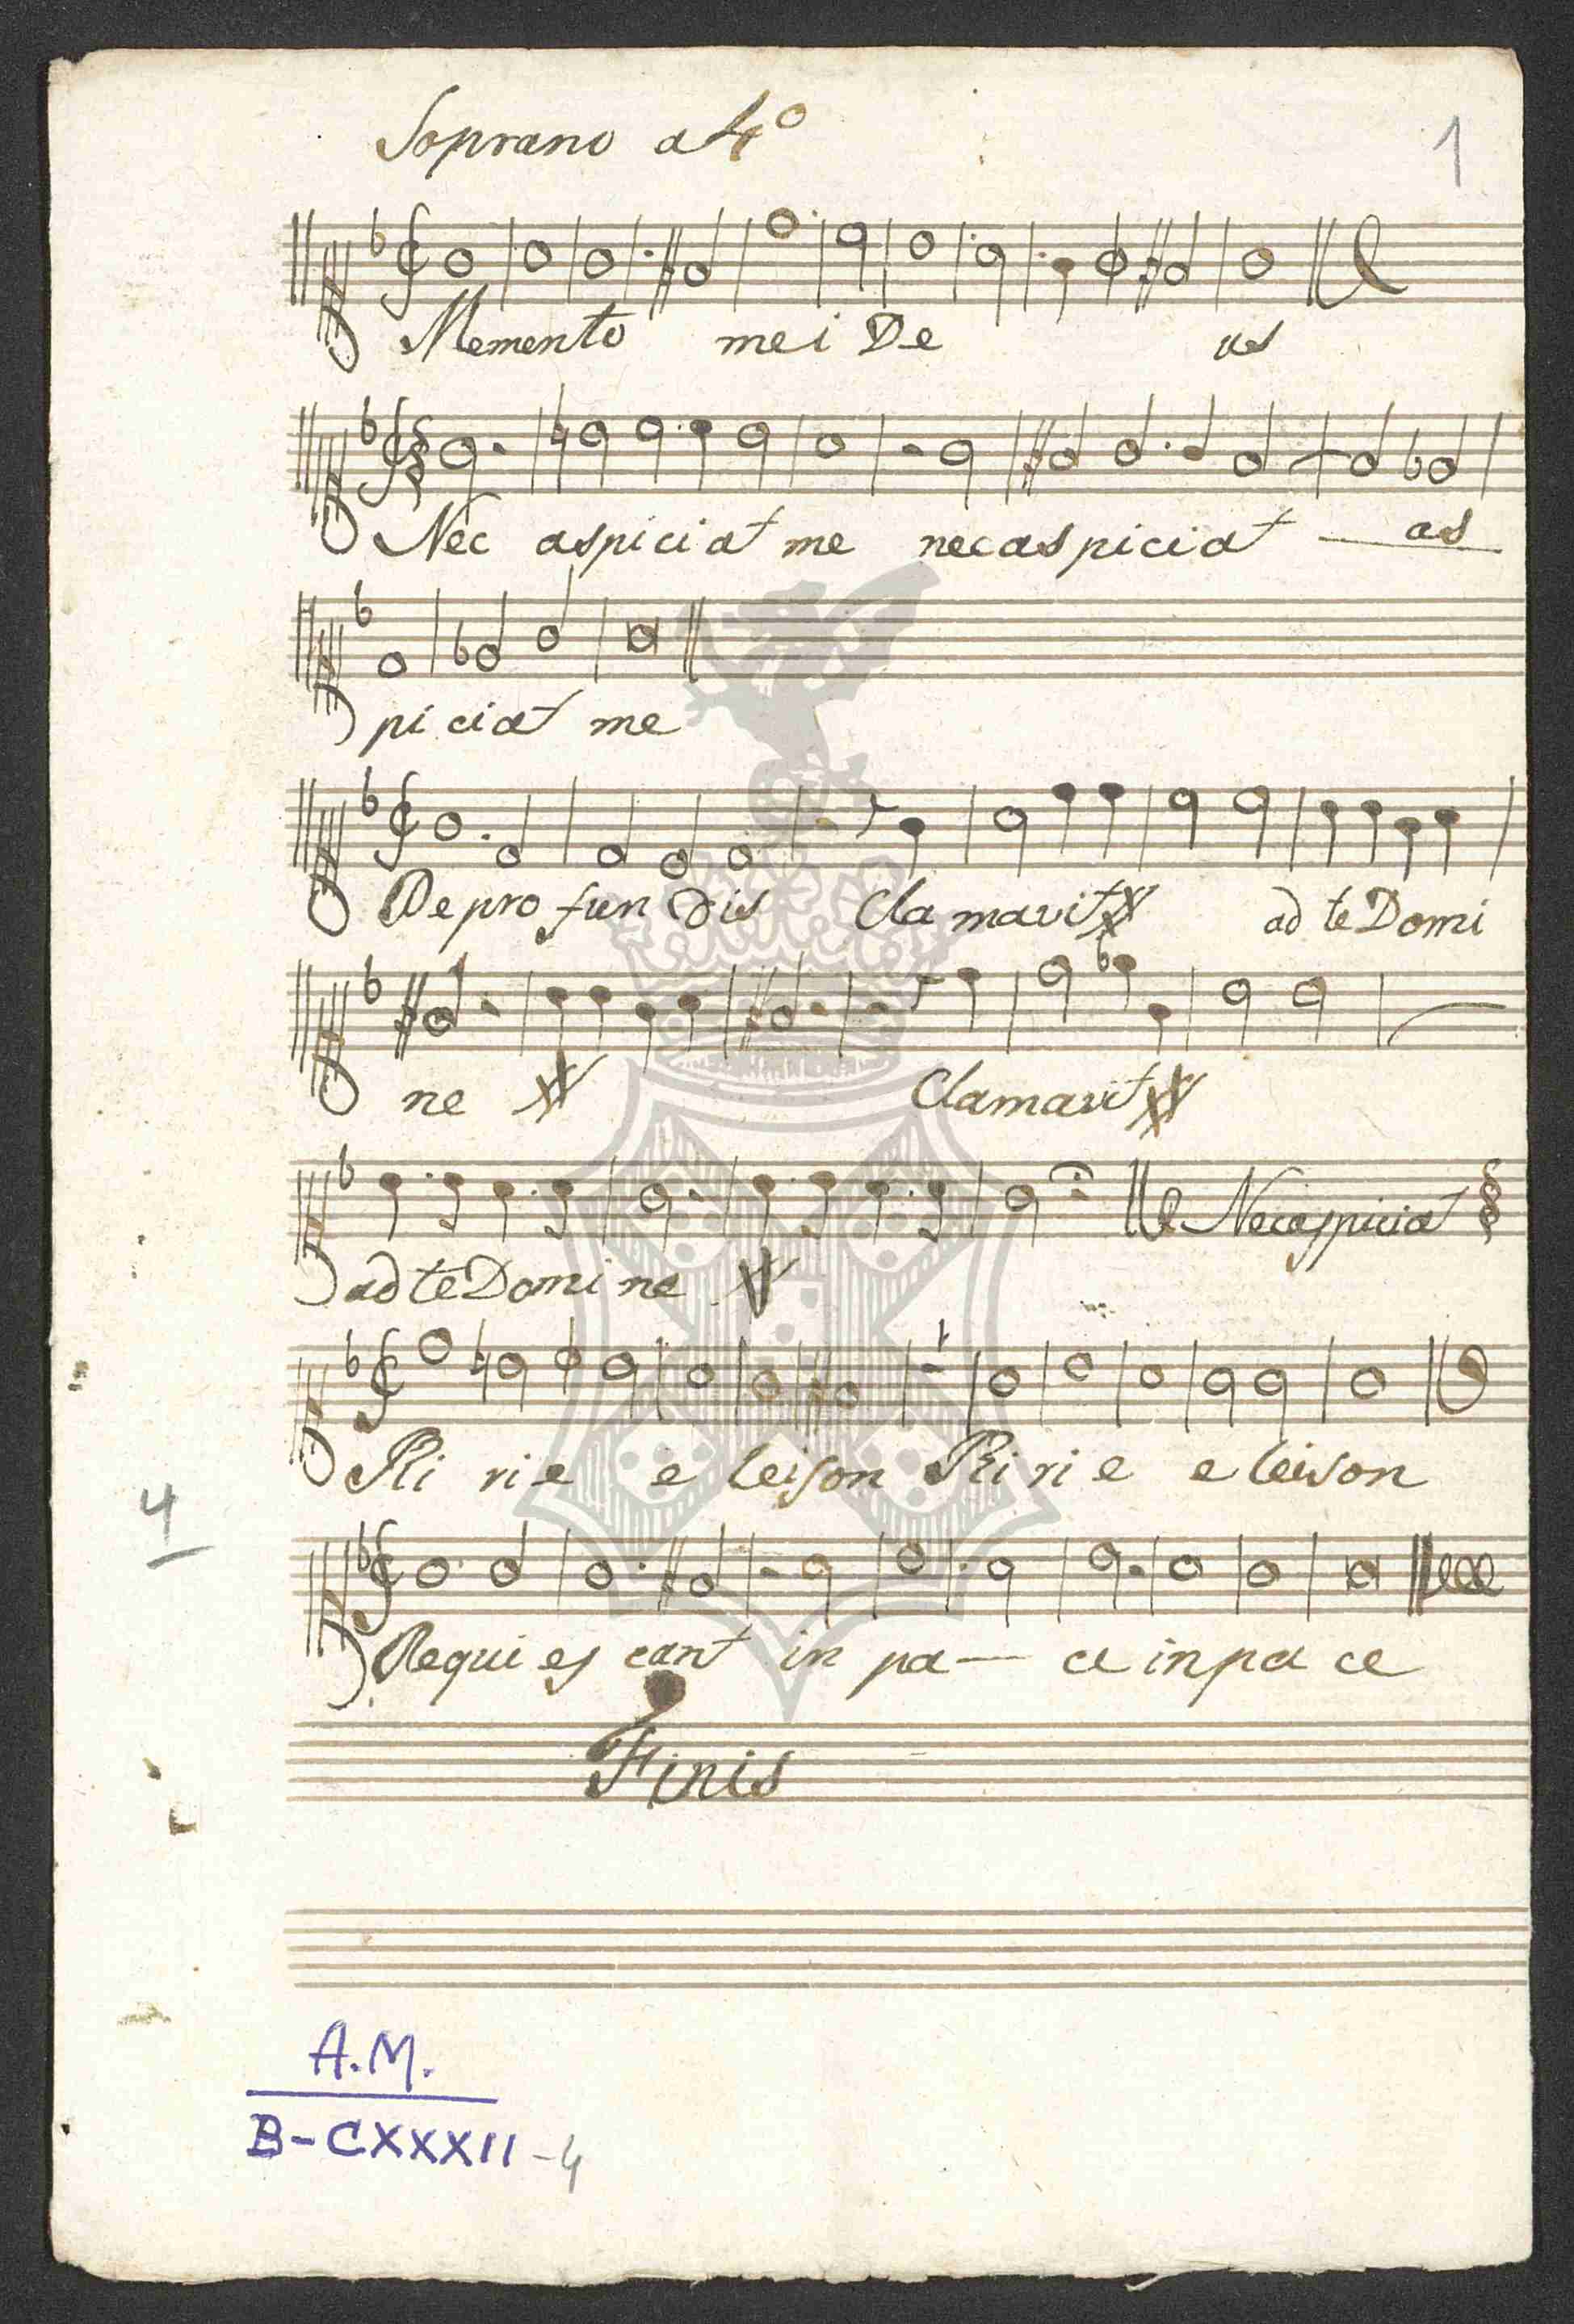 Soprano a 4º
1
Memento mei De us
Nec aspiciat me nec aspiciat as
piciat me
De profundis Clamavit ad te Domi
ne Clamavit
ad te Domine
Nec aspiciat
Kirie eleison Kirie eleison
4
Requiescant in pa ce in pa ce
Finis
A.M.
B-CXXXII-4